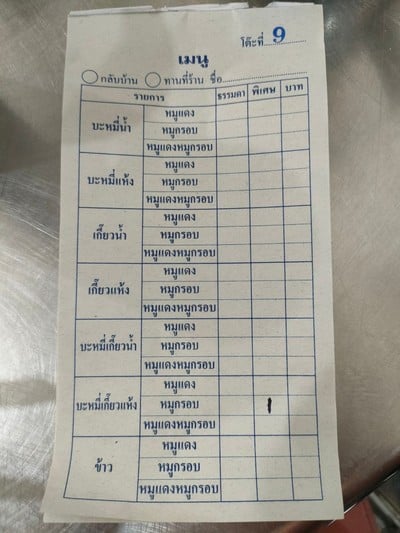 โต๊ะที่ 9
เมนู
กลับบ้าน ทานที่ร้าน ชื่อ
รายการ ธรรมดา พิเศษ บาท
บะหมี่น้ำ หมูแดง
หมูกรอบ
หมูแดงหมูกรอบ
บะหมี่แห้ง หมูแดง
หมูกรอบ
หมูแดงหมูกรอบ
เกี๊ยวน้ำ หมูแดง
หมูกรอบ
หมูแดงหมูกรอบ
เกี๊ยวแห้ง หมูแดง
หมูกรอบ
หมูแดงหมูกรอบ
บะหมี่เกี๊ยวน้ำ หมูแดง
หมูกรอบ
หมูแดงหมูกรอบ
บะหมี่เกี๊ยวแห้ง หมูแดง
หมูกรอบ 1
หมูแดงหมูกรอบ
ข้าว หมูแดง
หมูกรอบ
หมูแดงหมูกรอบ